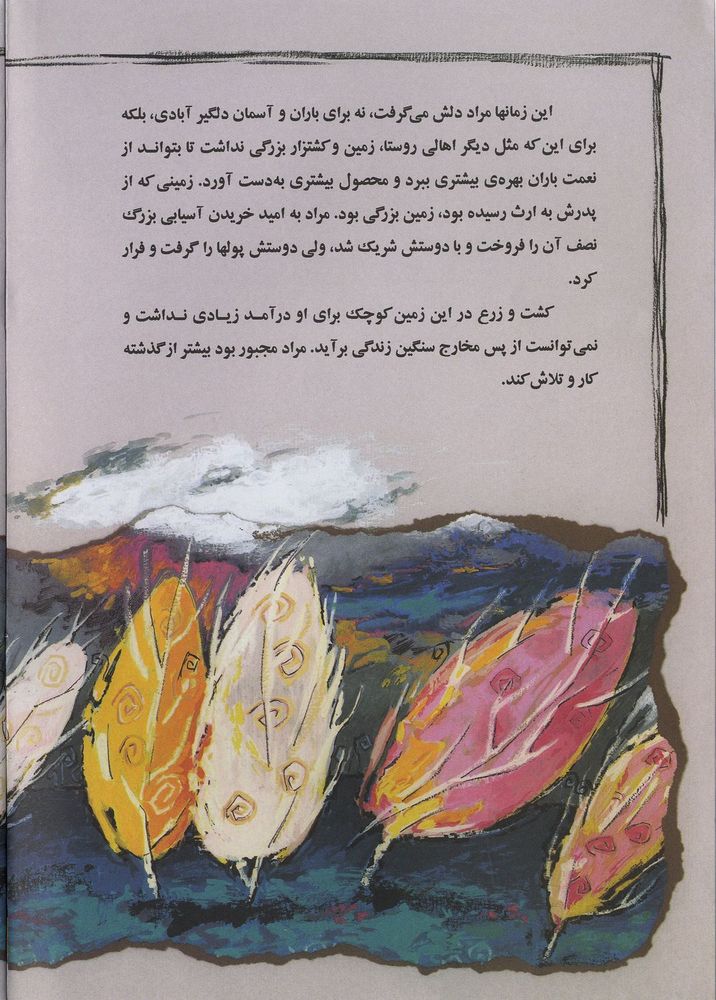 این زمانها مراد دلش می‌گرفت، نه برای باران و آسمان دلگیر آبادی، بلکه
برای این که مثل دیگر اهالی روستا، زمین و کشتزار بزرگی نداشت تا بتواند از
نعمت باران بهره‌ی بیشتری ببرد و محصول بیشتری به‌دست آورد. زمینی که از
پدرش به ارث رسیده بود، زمین بزرگی بود. مراد به امید خریدن آسیابی بزرگ
نصف آن را فروخت و با دوستش شریک شد، ولی دوستش پولها را گرفت و فرار
کرد.
کشت و زرع در این زمین کوچک برای او درآمد زیادی نداشت و
نمی‌توانست از پس مخارج سنگین زندگی برآید. مراد مجبور بود بیشتر از گذشته
کار و تلاش کند.